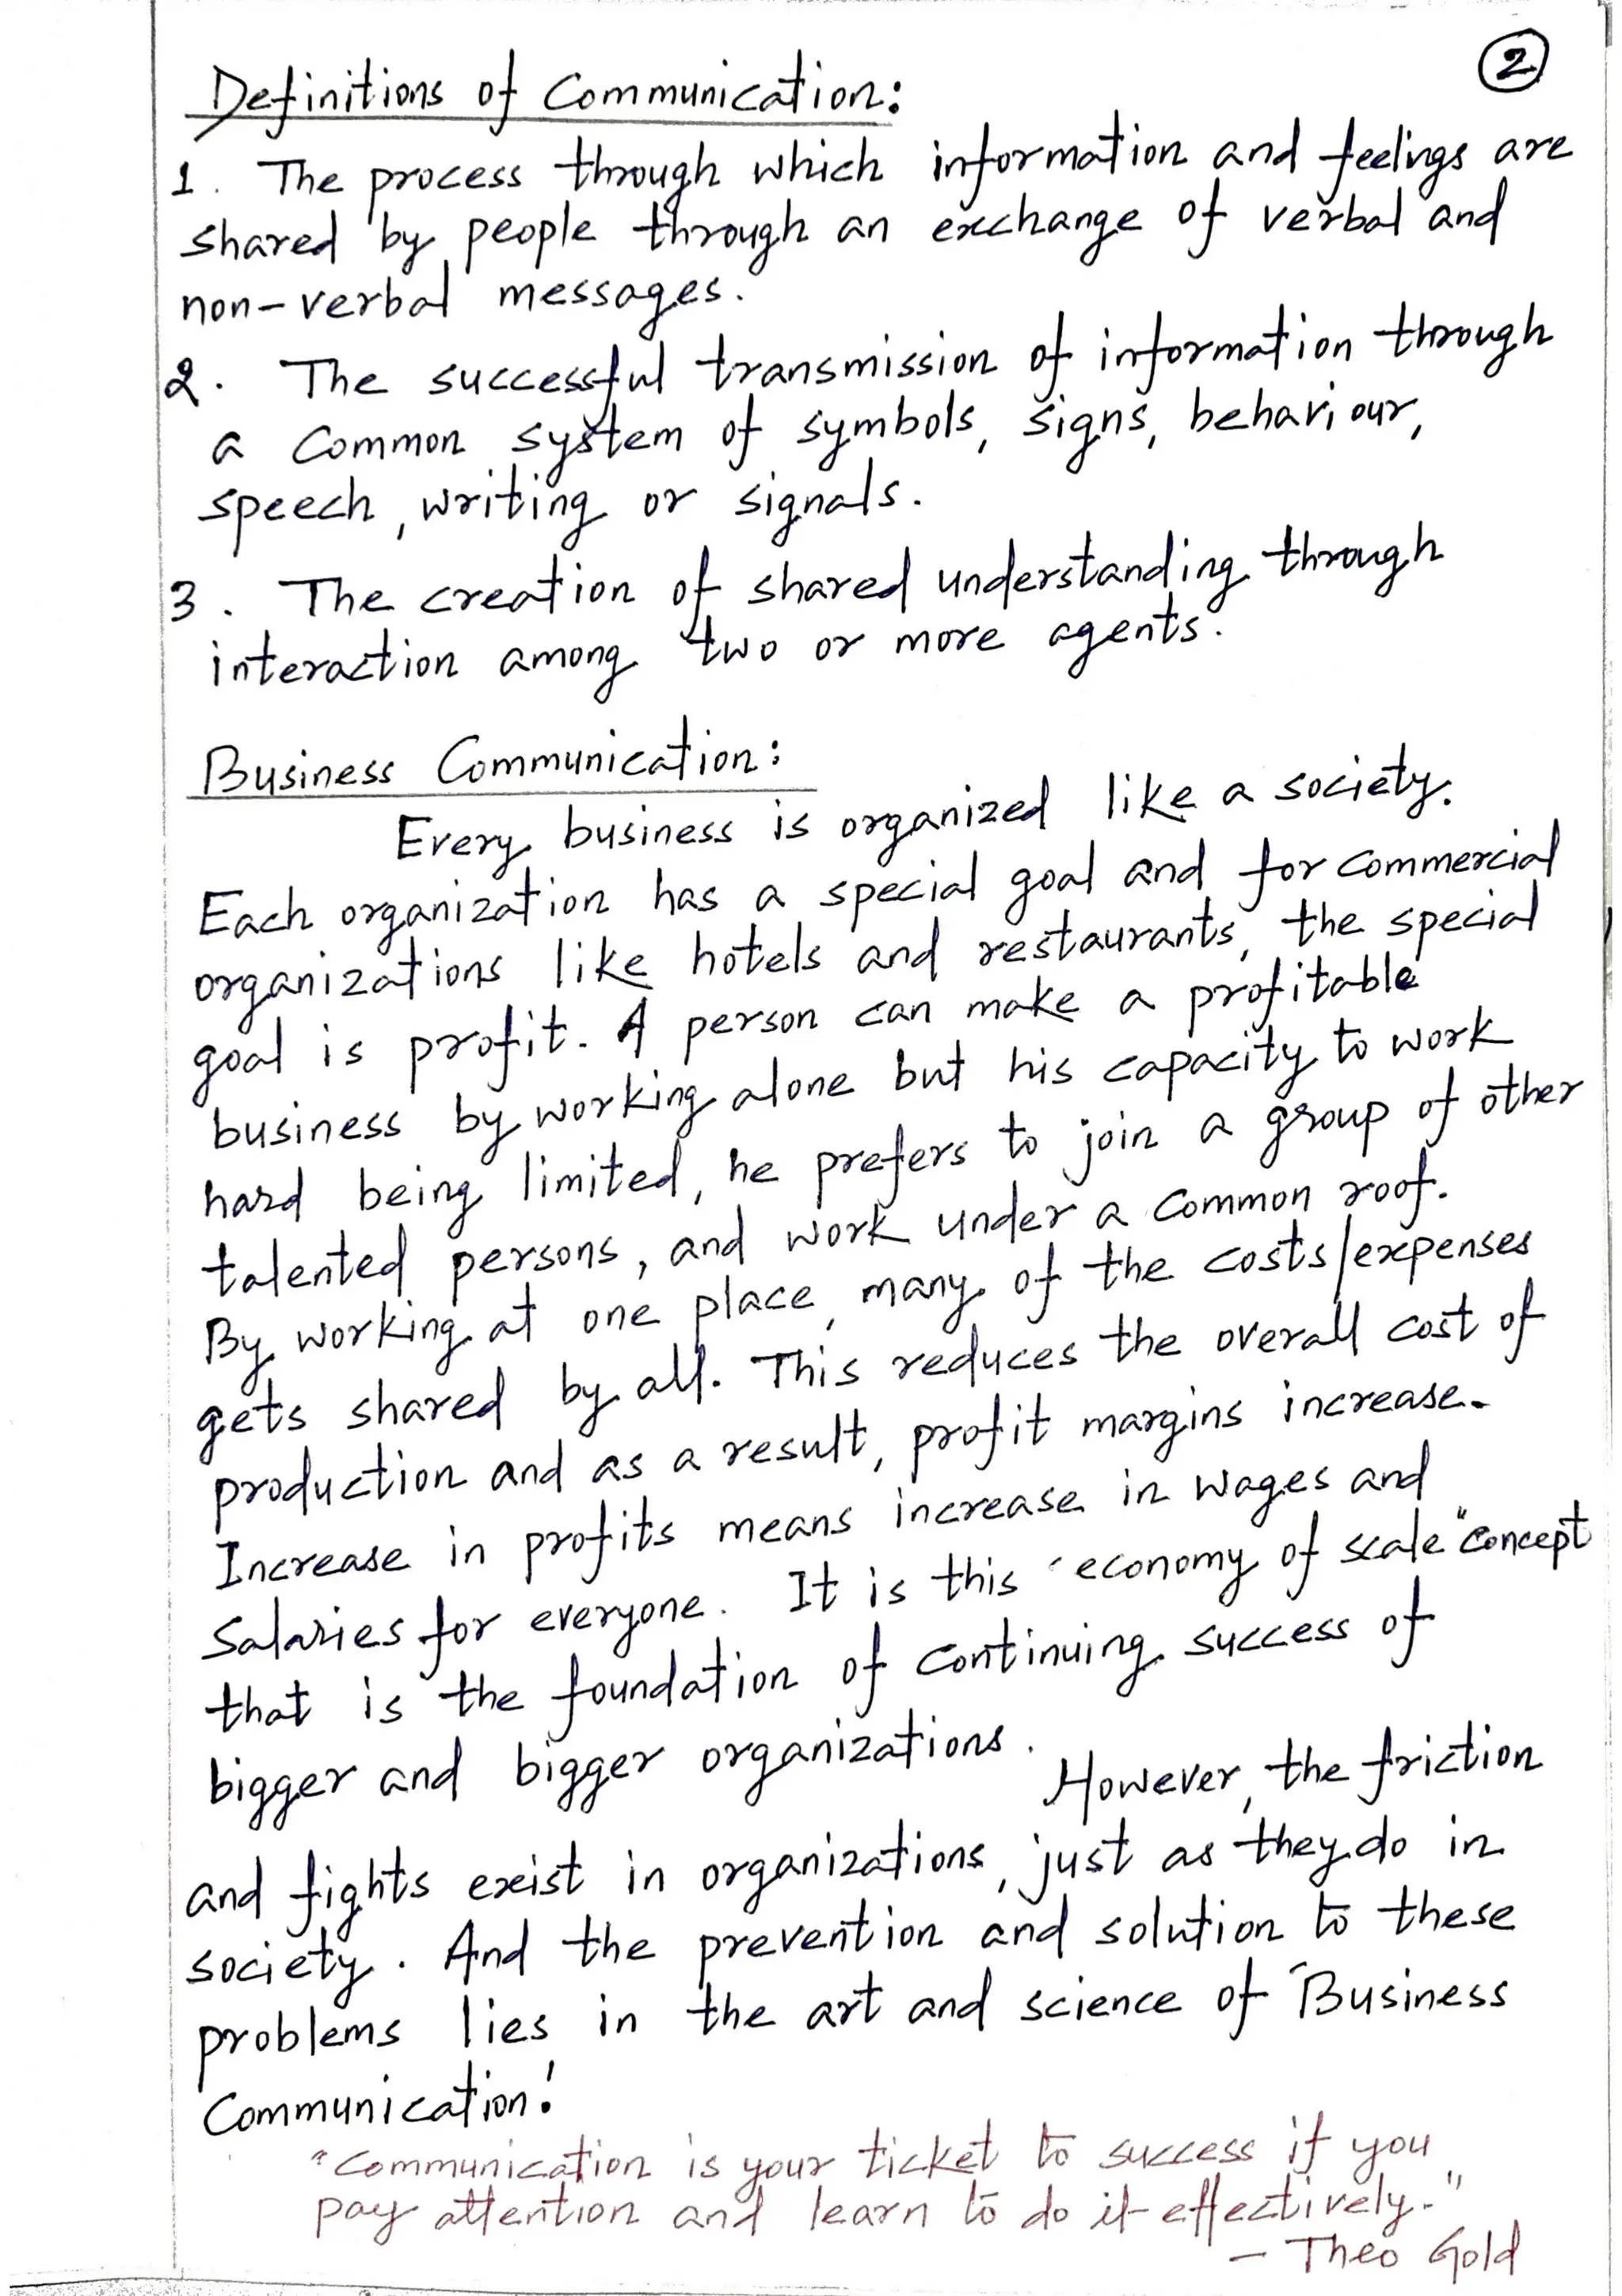 2
Definitions of Communication:
1. The process through which information and feelings are
shared by people through an exchange of verbal and
non-verbal messages.
2. The successful transmission of information through
a common system of symbols, signs, behaviour,
speech, writing or signals.
3. The creation of shared understanding through
interaction among two or more agents.
Business Communication:
Every business is organized like a society.
Each organization has a special goal and for commercial
organizations like hotels and restaurants, the special
goal is profit. A person can make a profitable
business by working alone but his capacity to work
hard being limited, he prefers to join a group of other
talented persons, and work under a common roof.
By working at one place, many of the costs/expenses
gets shared by all. This reduces the overall cost of
production and as a result, profit margins increase.
Increase in profits means increase in wages and
salaries for everyone. It is this "economy of scale" concept
that is the foundation of continuing success of
bigger and bigger organizations.
However, the friction
and fights exist in organizations, just as they do in
society. And the prevention and solution to these
problems lies in the art and science of Business
Communication!
"Communication is your ticket to success if you
pay attention and learn to do it effectively."
- Theo Gold